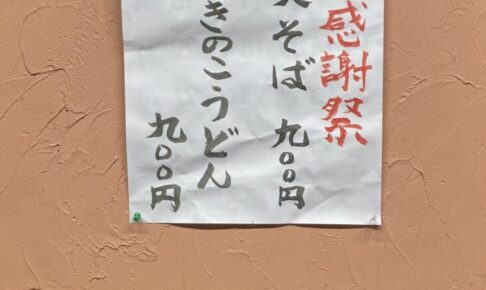 感謝祭
そば 九〇〇円
きのこうどん
九〇〇円